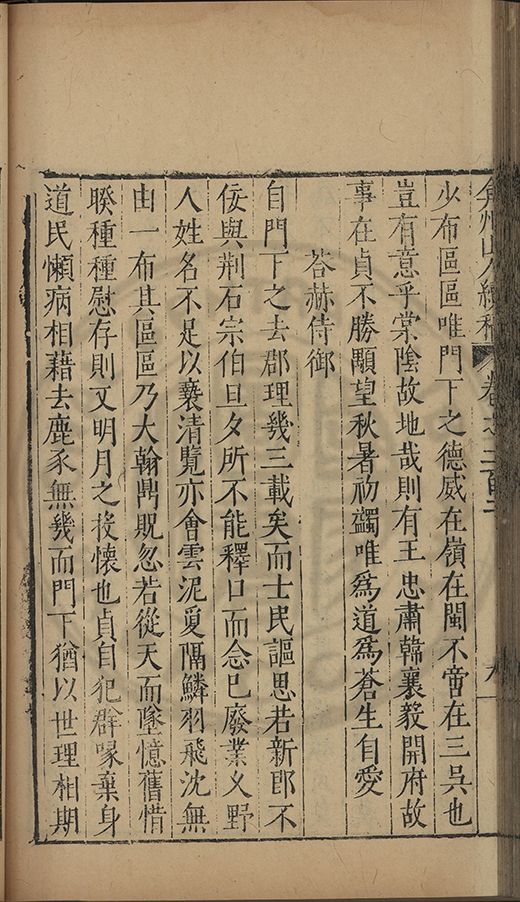 弇州山人續稿 卷之二百二 九
少布區區唯門下之德威在嶺在閩不啻在三吳也
豈有意乎棠陰故地哉則有王忠肅韓襄毅開府故
事在貞不勝顒望秋暑初蠲唯爲道爲蒼生自愛
荅赫侍御
自門下之去郡理幾三載矣而士民謳思若新卽不
佞與荆石宗伯旦夕所不能釋口而念巳廢業乂野
人姓名不足以䙝清覽亦會雲泥夐隔鱗羽飛沈無
由一布其區區乃大翰鼎貺忽若從天而墜憶舊惜
睽種種慰存則又明月之投懷也貞自犯群喙棄身
道民懶病相藉去鹿豕無幾而門下猶以世理相期